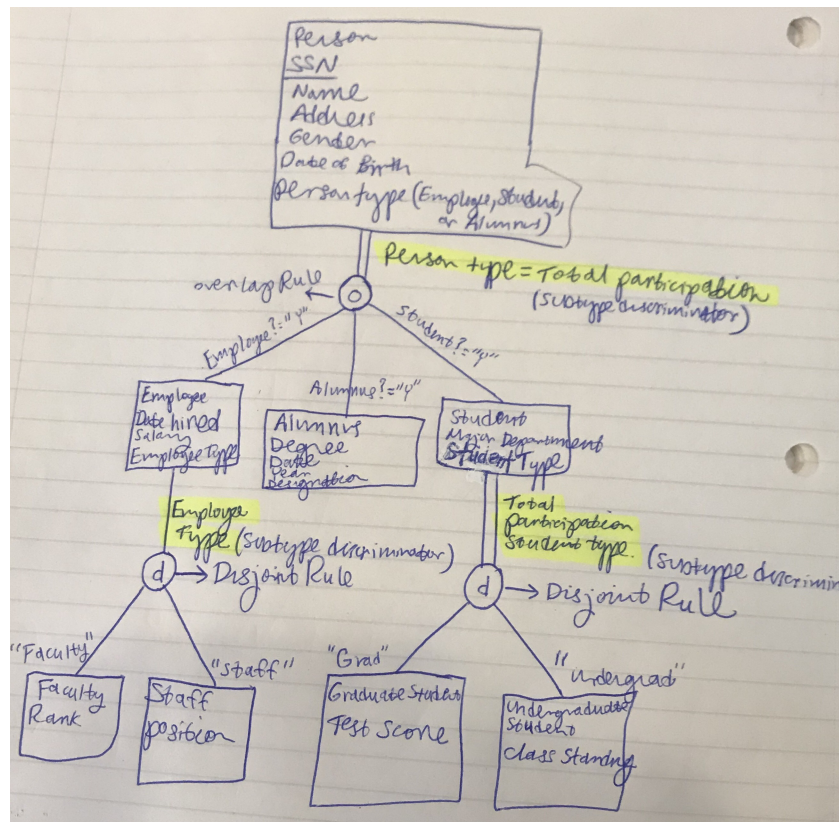 Person
SSN
Name
Address
Gender
Date of Birth
Person type (Employee, Student,
or Alumnus)
Person type = Total participation
(subtype discriminator)
overlap Rule
O
Employee?="Y"
Alumnus?="Y"
Student?="Y"
Employee
Date hired
Salary
Employee Type
Alumnus
Degree
Date
Year
Designation
Student
Major Department
Student Type
Employee
Type (subtype discriminator)
d
Disjoint Rule
Total
participation
Student type. (subtype discrimin
d
Disjoint Rule
"Faculty"
"Staff"
"Grad"
"undergrad"
Faculty
Rank
Staff
position
Graduate Student
Test Score
Undergraduate
Student
Class Standing